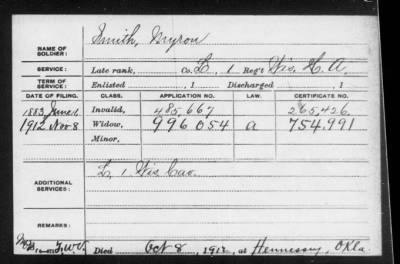 NAME OF SOLDIER: Smith, Myron
SERVICE: Late rank, Co. L, 1 Reg't Wis. H. A.
TERM OF SERVICE: Enlisted , 1 Discharged , 1
DATE OF FILING. CLASS. APPLICATION NO. LAW. CERTIFICATE NO.
1883 June 1 Invalid, 485,667 265,426
1912 Nov 8 Widow, 996054 a 754.991
Minor,
ADDITIONAL SERVICES: L, 1 Wis Cav.
REMARKS:
Died Oct 8, 1912, at Hennessy, Okla.